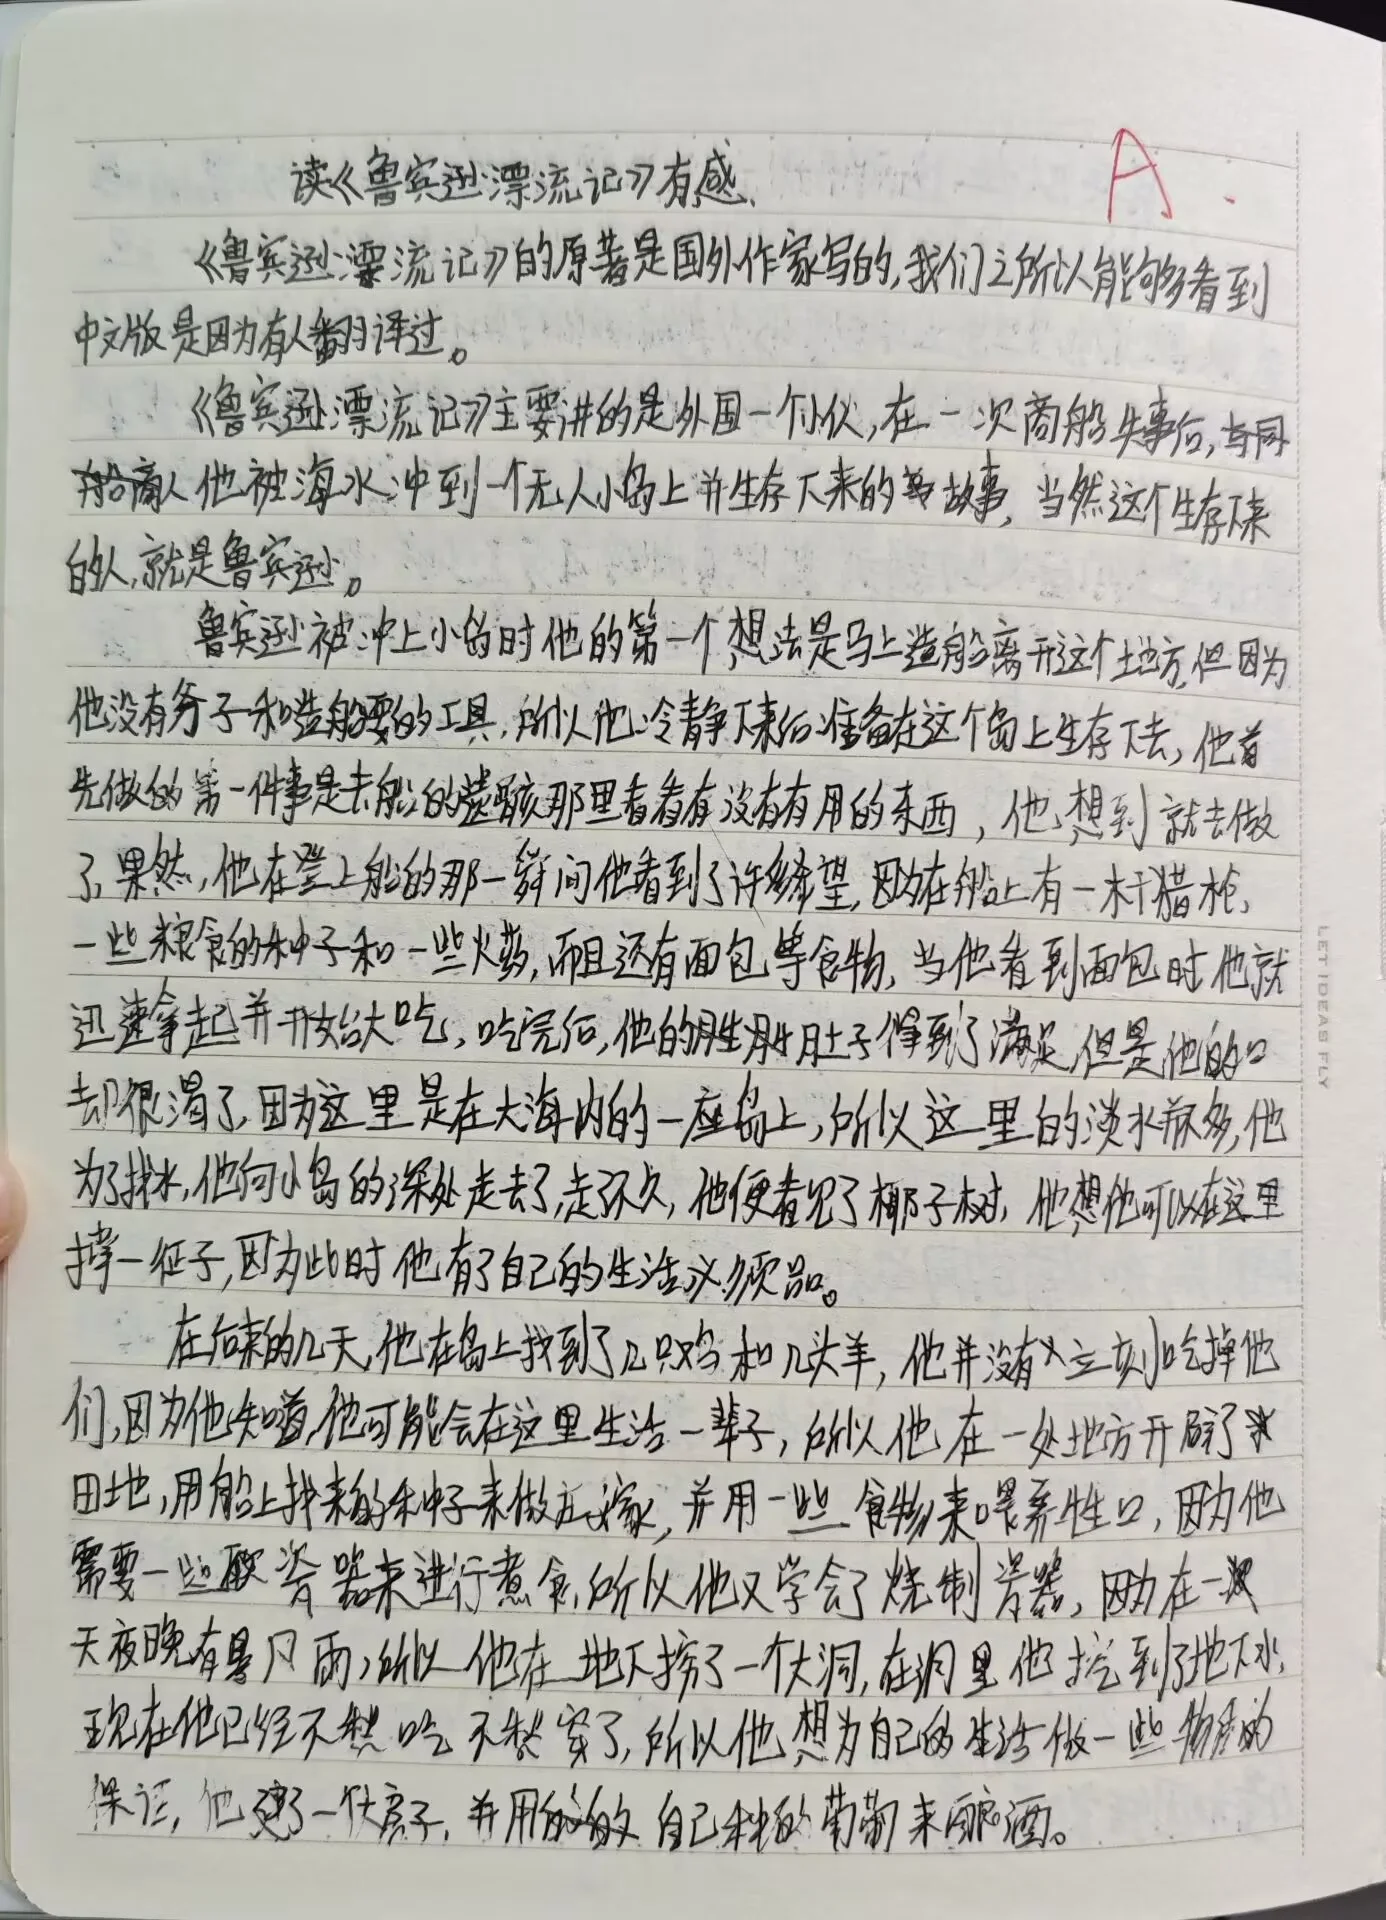 读《鲁宾逊漂流记》有感
A
《鲁宾逊漂流记》的原著是国外作家写的,我们之所以能够看到
中文版是因为有人翻译过。
《鲁宾逊漂流记》主要讲的是外国一个小伙,在一次商船失事后,与同
船商人他被海水冲到一个无人小岛上并生存下来的故事,当然这个生存下来
的人,就是鲁宾逊。
鲁宾逊被冲上小岛时他的第一个想法是马上造船离开这个地方,但因为
他没有斧子和造船要的工具,所以他冷静下来后准备在这个岛上生存下去,他首
先做的第一件事是去船的残骸那里看看有没有有用的东西,他想到就去做
了,果然,他在登上船的那一瞬间他看到了许多希望,因为在船上有一杆猎枪、
一些粮食的种子和一些火药,而且还有面包等食物,当他看到面包时他就
迅速拿起并开始大吃,吃完后,他的肚子得到了满足,但是他的口
却很渴了,因为这里是在大海内的一座岛上,所以这里的淡水不多,他
为了找水,他向小岛的深处走去了,走不久,他便看见了椰子树,他想他可以在这里
撑一阵子,因为此时他有了自己的生活必须品。
在后来的几天,他在岛上找到了几只鸡和几头羊,他并没有立刻吃掉他
们,因为他知道,他可能会在这里生活一辈子,所以他在一处地方开辟了
田地,用船上找来的种子来做庄家,并用一些食物来喂养牲口,因为他
需要一些瓷器来进行煮食,所以他又学会了烧制瓷器,因为在一
天夜晚有暴风雨,所以他在地下挖了一个大洞,在洞里他挖到了地下水,
现在他已经不愁吃不愁穿了,所以他想为自己的生活做一些物质的
保证,他建了一个大房子,并用自己种的葡萄来酿酒。
LET IDEAS FLY